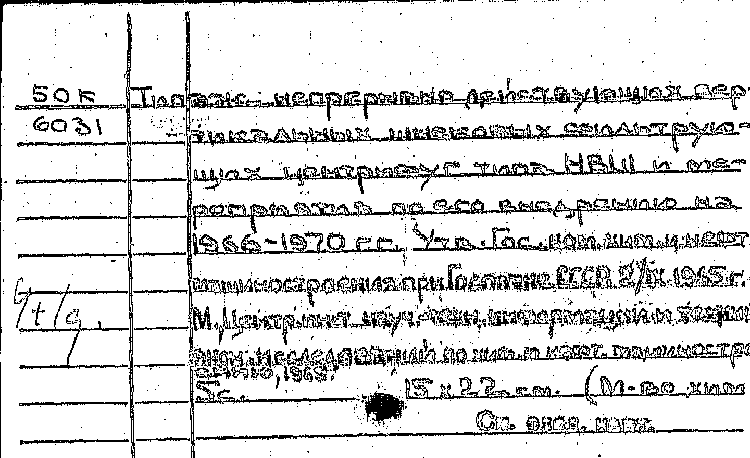 50к Типаж непрерывно действующих вер-
6031 тикальных шнековых фильтрую-
щих центрифуг типа НВШ и ме-
роприятия по его внедрению на
1966-1970 г.г. Утв. Гос. ком. хим. и нефт.
машиностроения при Госплане СССР 1965 г.
М., Центр. инт. науч.-техн. информации и техни
исследований по хим. и нефт. машиностр
5с. 15 х 22 см. (М-во хим